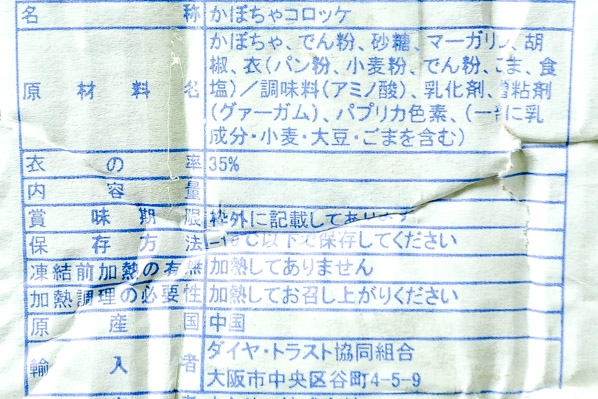 名称 かぼちゃコロッケ
原材料名 かぼちゃ、でん粉、砂糖、マーガリン、胡
椒、衣(パン粉、小麦粉、でん粉、ごま、食
塩)／調味料(アミノ酸)、乳化剤、増粘剤
(グァーガム)、パプリカ色素、(一部に乳
成分・小麦・大豆・ごまを含む)
衣の率 35%
内容量
賞味期限 枠外に記載してあります
保存方法 -18℃以下で保存してください
凍結前加熱の有無 加熱してありません
加熱調理の必要性 加熱してお召し上がりください
原産国 中国
輸入者 ダイヤ・トラスト協同組合
大阪市中央区谷町4-5-9